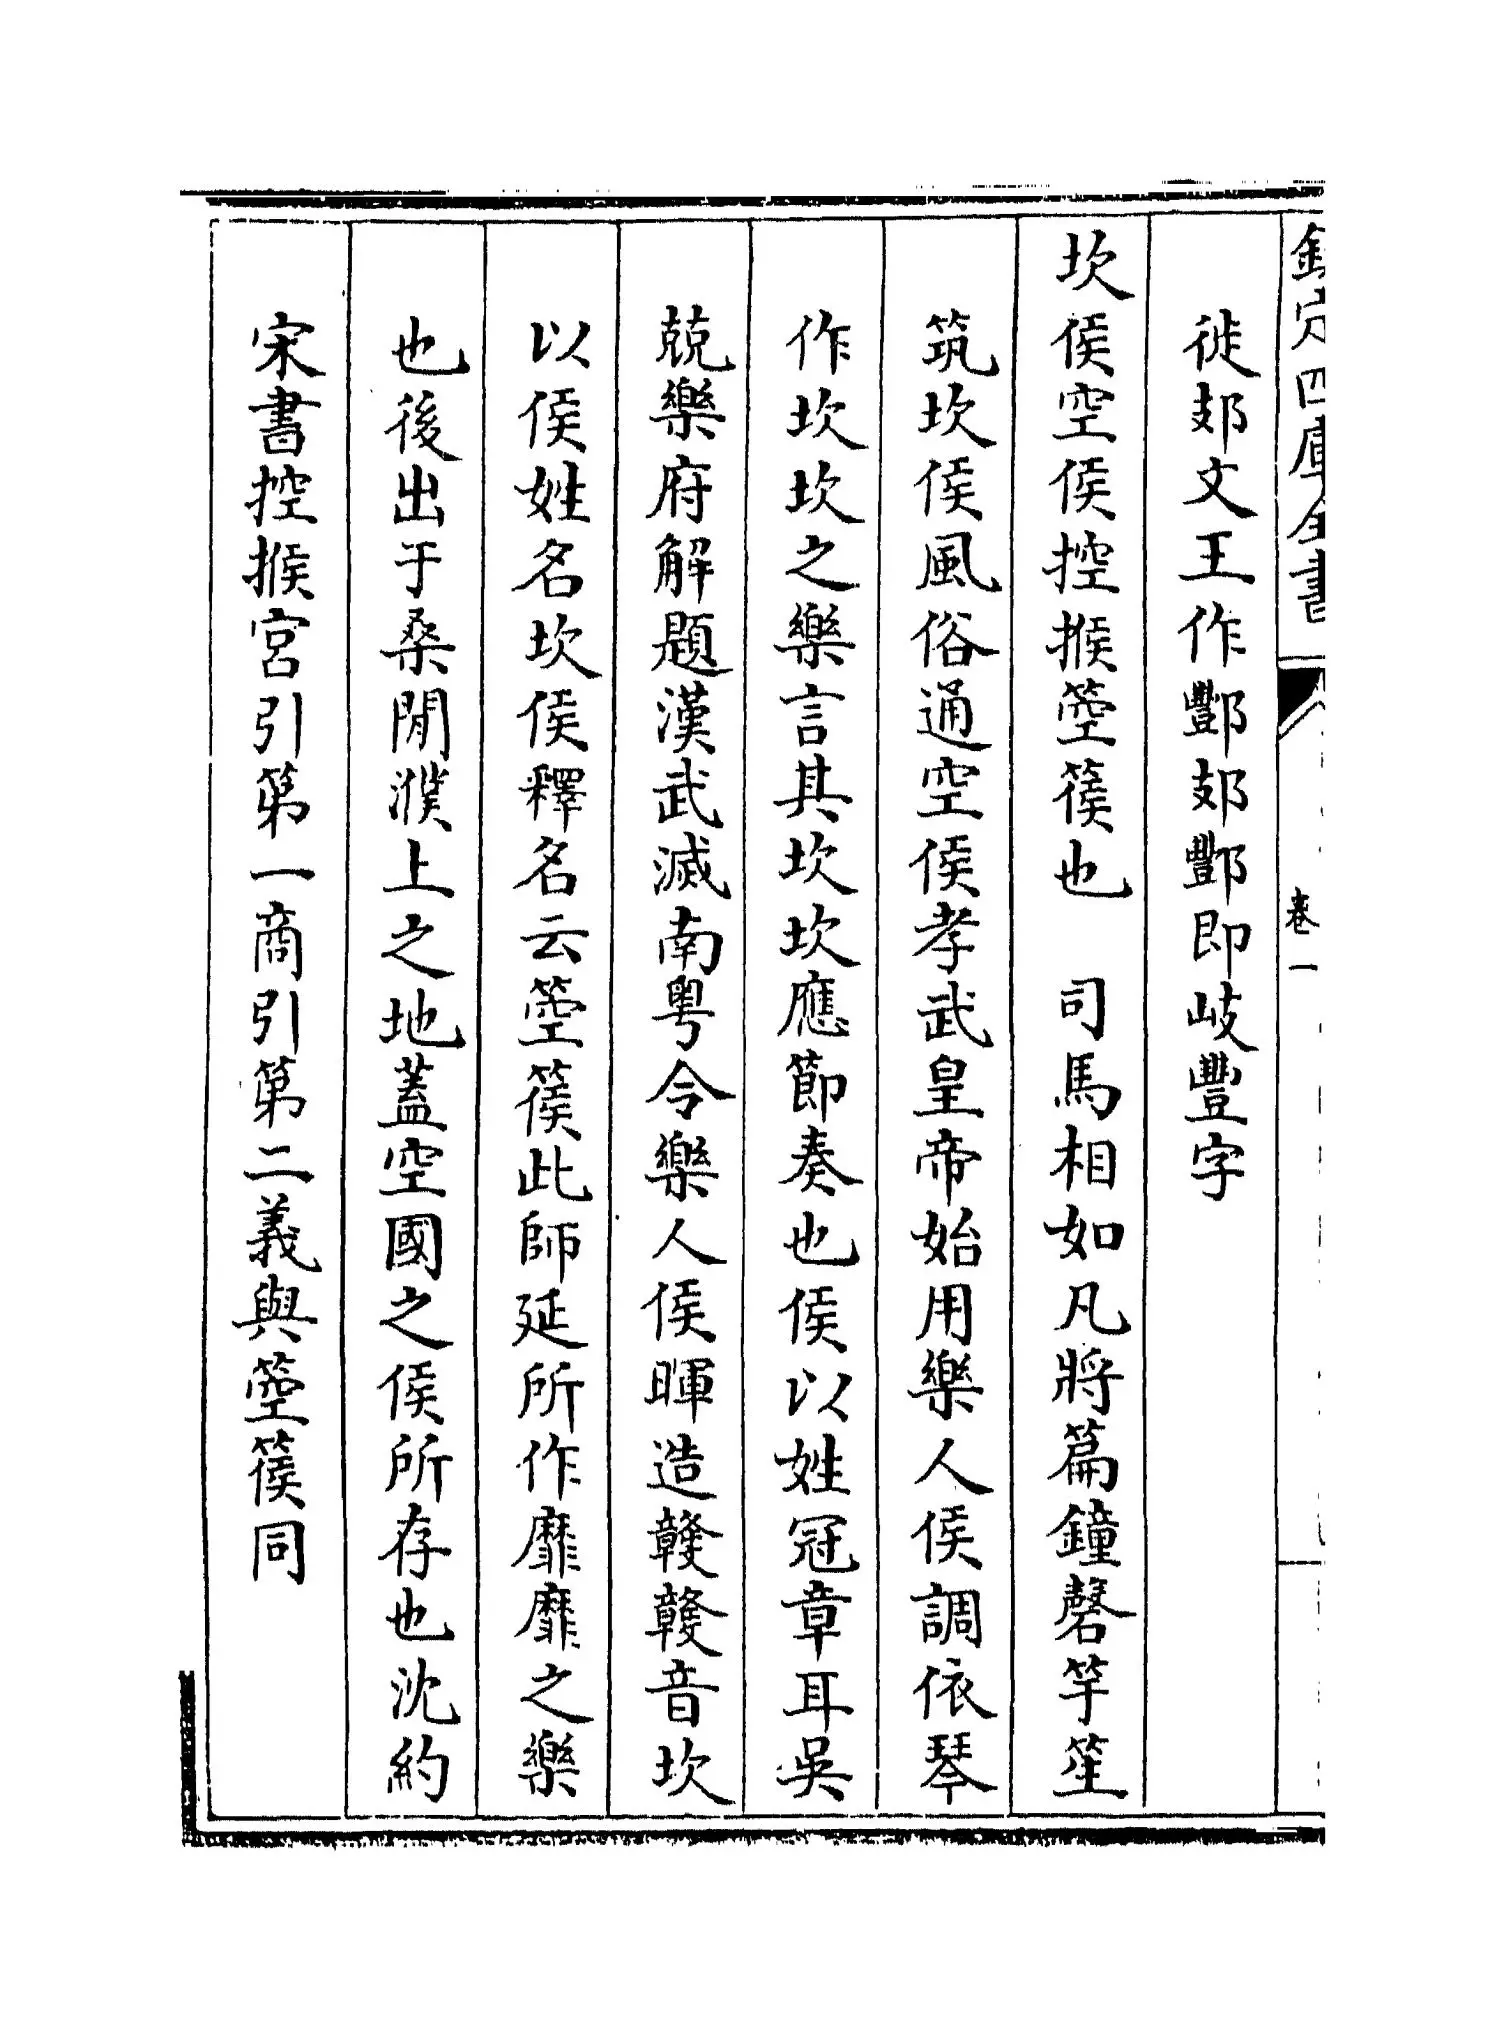 欽定四庫全書
卷一
徙郊文王作酆郊酆即岐豐字
坎侯空侯控㨭箜篌也　司馬相如凡將篇鐘磬竽笙
筑坎侯風俗通空侯孝武皇帝始用樂人侯調依琴
作坎坎之樂言其坎坎應節奏也侯以姓冠章耳吳
兢樂府解題漢武滅南粤令樂人侯暉造贛贛音坎
以侯姓名坎侯釋名云箜篌此師延所作靡靡之樂
也後出于桑間濮上之地蓋空國之侯所存也沈約
宋書控㨭宮引第一商引第二義與箜篌同